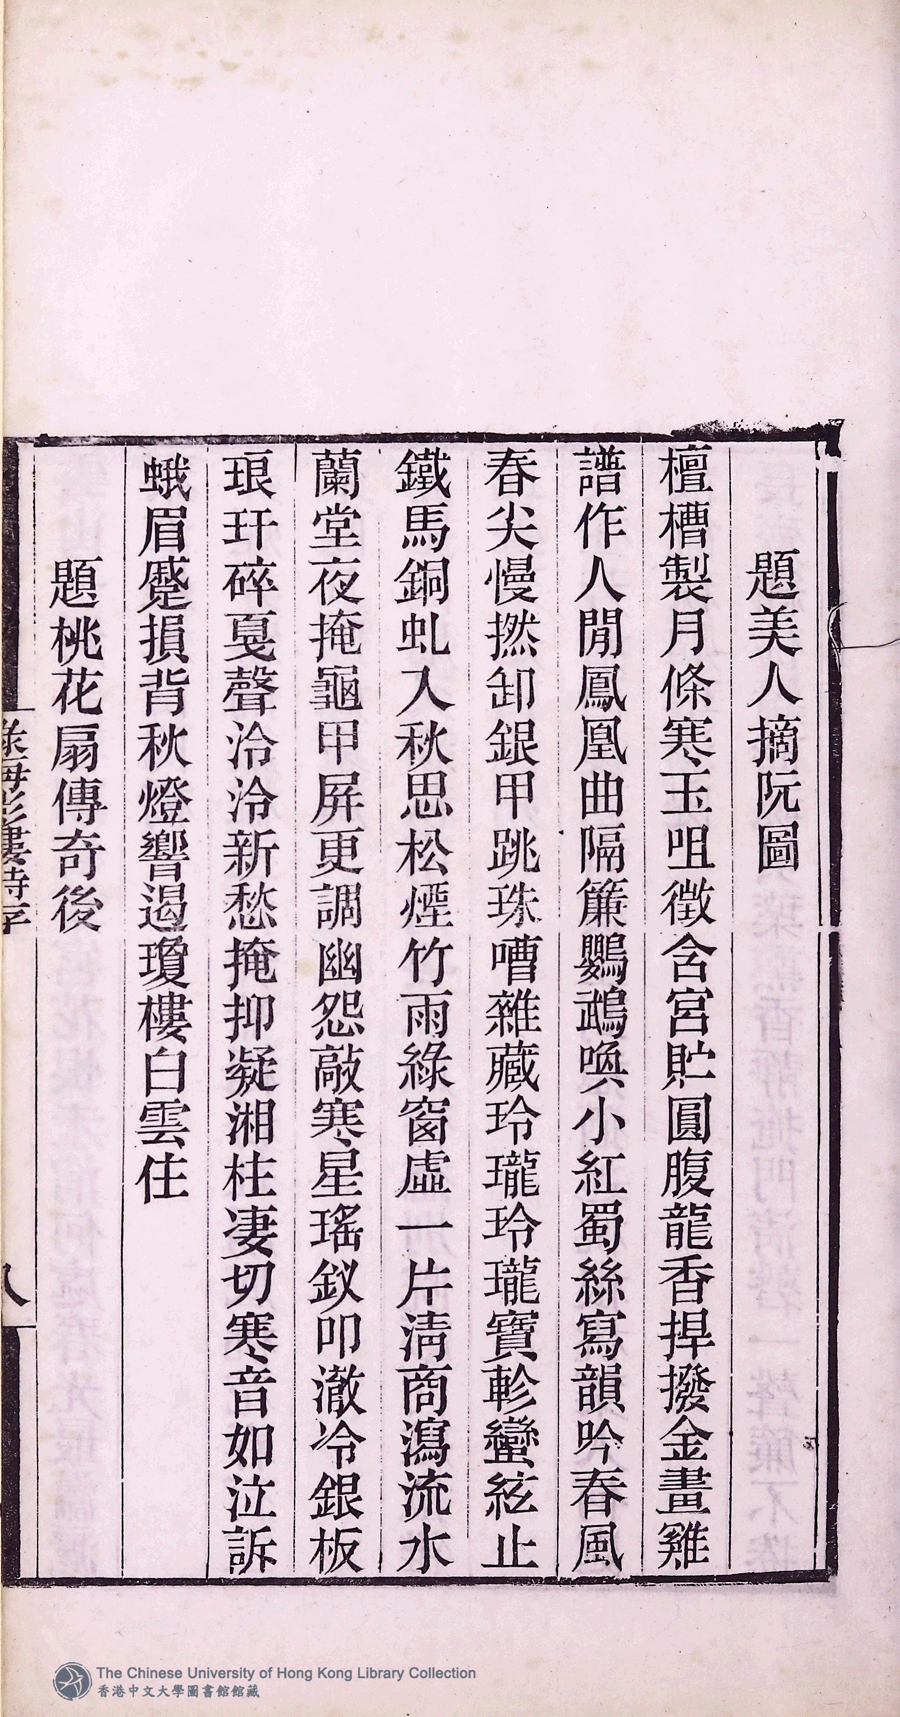 題美人摘阮圖
檀槽製月條寒玉咀徵含宮貯圓腹龍香捍撥金畫雞
譜作人閒鳳凰曲隔簾鸚鵡喚小紅蜀絲寫韻吟春風
春尖慢撚卸銀甲跳珠嘈雜藏玲瓏玲瓏寶軫蠻絃止
鐵馬銅虬入秋思松煙竹雨綠窗虛一片淸商瀉流水
蘭堂夜掩龜甲屏更調幽怨敲寒星瑤釵叩澈冷銀板
琅玕碎戛聲泠泠新愁掩抑凝湘柱凄切寒音如泣訴
蛾眉蹙損背秋燈響遏瓊樓白雲住
題桃花扇傳奇後
八
The Chinese University of Hong Kong Library Collection
香港中文大學圖書館館藏